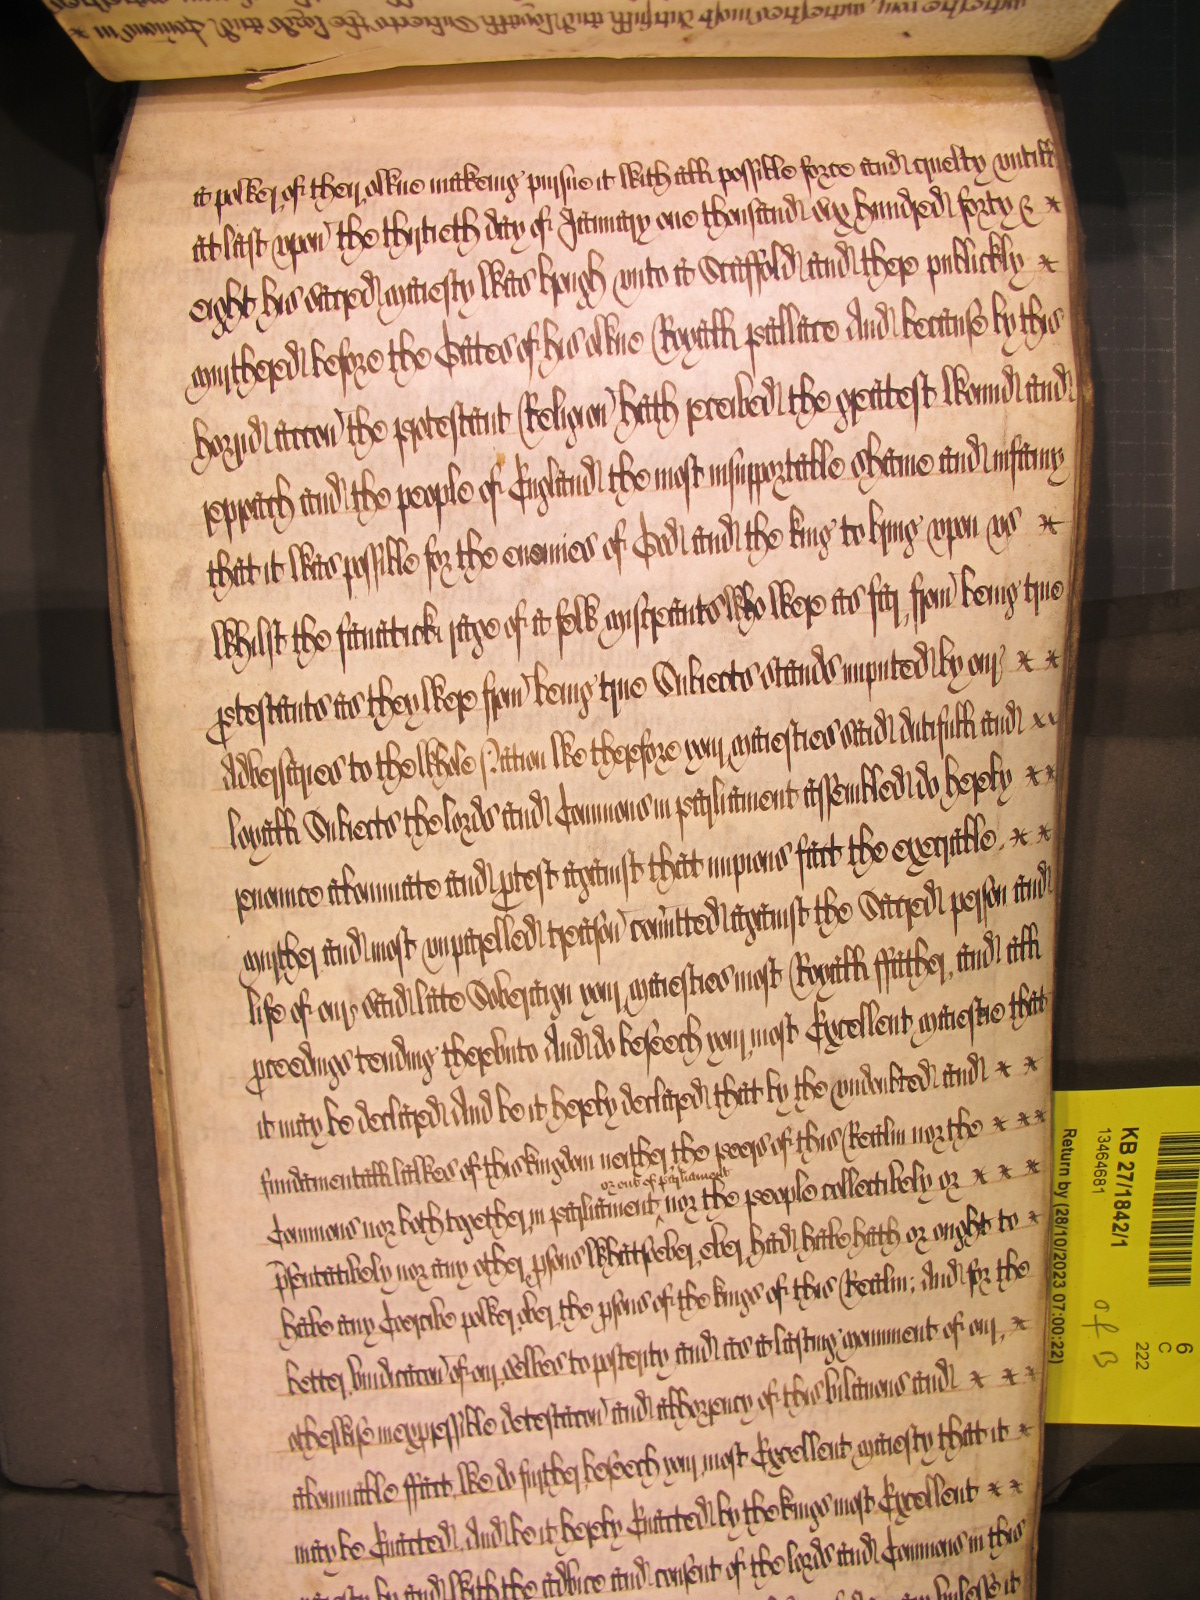 a power of their owne makeing pursue it with all possible force and cruelty untill
at last upon the thirtieth day of January one thousand six hundred forty &
eight his sacred Majesty was brough unto a Scaffold and there publickly
murthered before the Gates of his owne Royall pallace And because by this
horrid accon the protestant Religion hath received the greatest wound and
reproach and the people of England the most insupportable shame and infamy
that it was possible for the enemies of God and the king to bring upon us
whilst the fanatick rage of a few miscreants who were as far from being true
protestants as they were from being true Subiects stands imputed by our
Adversaries to the whole Nation we therefore your Majesties said dutifull and
loyall Subiects the lords and Commons in parliament assembled do hereby
renounce abominate and protest against that impious fact the execrable
murther and most unparelled treason comitted against the Sacred person and
life of our said late Soveraign your Majesties most Royall ffather, and all
proceedings tending thereunto And do beseech your most Excellent Majestie that
it may be declared And be it hereby declared that by the undoubted and
fundamentall lawes of this kingdom neither the peers of this Realm nor the
or out of parliament
Commons nor both together in parliament nor the people collectively or
rpsentatively nor any other psons whatsoever, ever had have hath or ought to
have any Coercive power over the psons of the kings of this Realm; And for the
better vindicacon of our selves to posterity and as a lasting monument of our,
otherwise inexpressible detestacon and abhorrency of this vilanous and
abominable ffact, we do further beseech your most Excellent Majesty that it
may be Enacted, And be it hereby Enacted by the kings most Excellent
Majesty by and with the advice and consent of the lords and Commons in this
unlesse it
KB 27/1842/1
13464681
Return by (28/10/2023 07:00:22)
6
C
222
of B